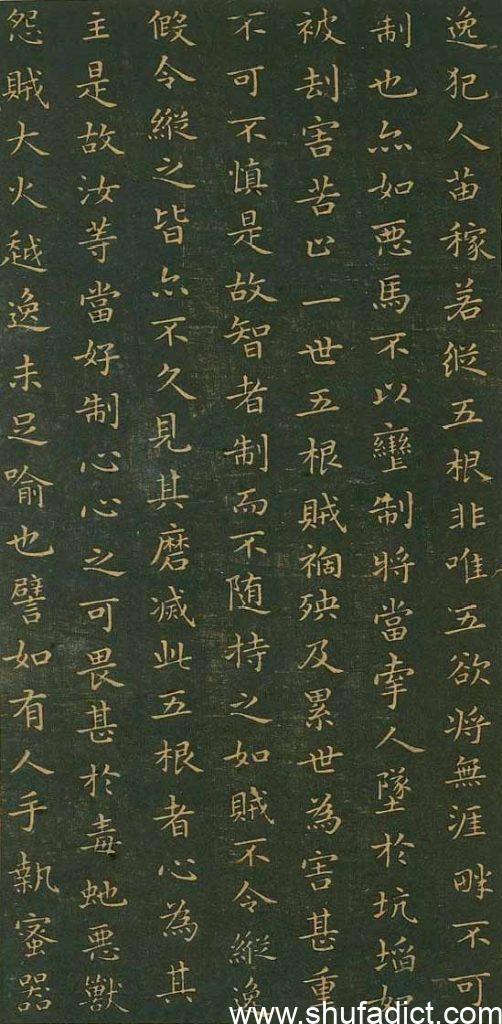 逸犯人苗稼若縱五根非唯五欲將無涯畔不可
制也亦如惡馬不以轡制將當牽人墜於坑埳如
被劫害苦止一世五根賊禍殃及累世為害甚重
不可不慎是故智者制而不随持之如賊不令縱逸
假令縱之皆亦不久見其磨滅此五根者心為其
主是故汝等當好制心心之可畏甚於毒虵惡獸
怨賊大火越逸未足喻也譬如有人手執蜜器
www.shufadict.com